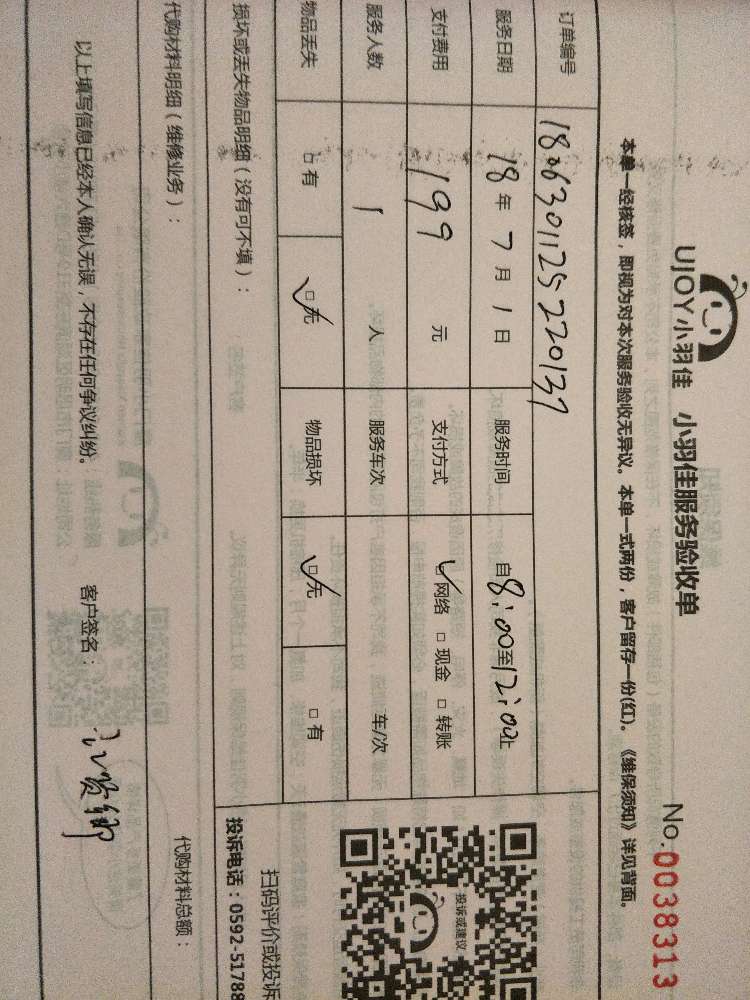 UJOY小羽佳 小羽佳服务验收单 No.0038313
本单一经核签，即视为对本次服务验收无异议。本单一式两份，客户留存一份(红)。《维保须知》详见背面。
订单编号 180630112522013
服务日期 18年7月1日 服务时间 自8:00至12:00止
支付费用 199元 支付方式 ☑网络 □现金 □转账
服务人数 1人 服务车次 车/次
物品丢失 □有 ☑无 物品损坏 ☑无 □有
损坏或丢失物品明细（没有可不填）：
代购材料明细（维修业务）：
代购材料总额：
以上填写信息已经本人确认无误，不存在任何争议纠纷。 客户签名：
投诉或建议
扫码评价或投诉
投诉电话：0592-51788